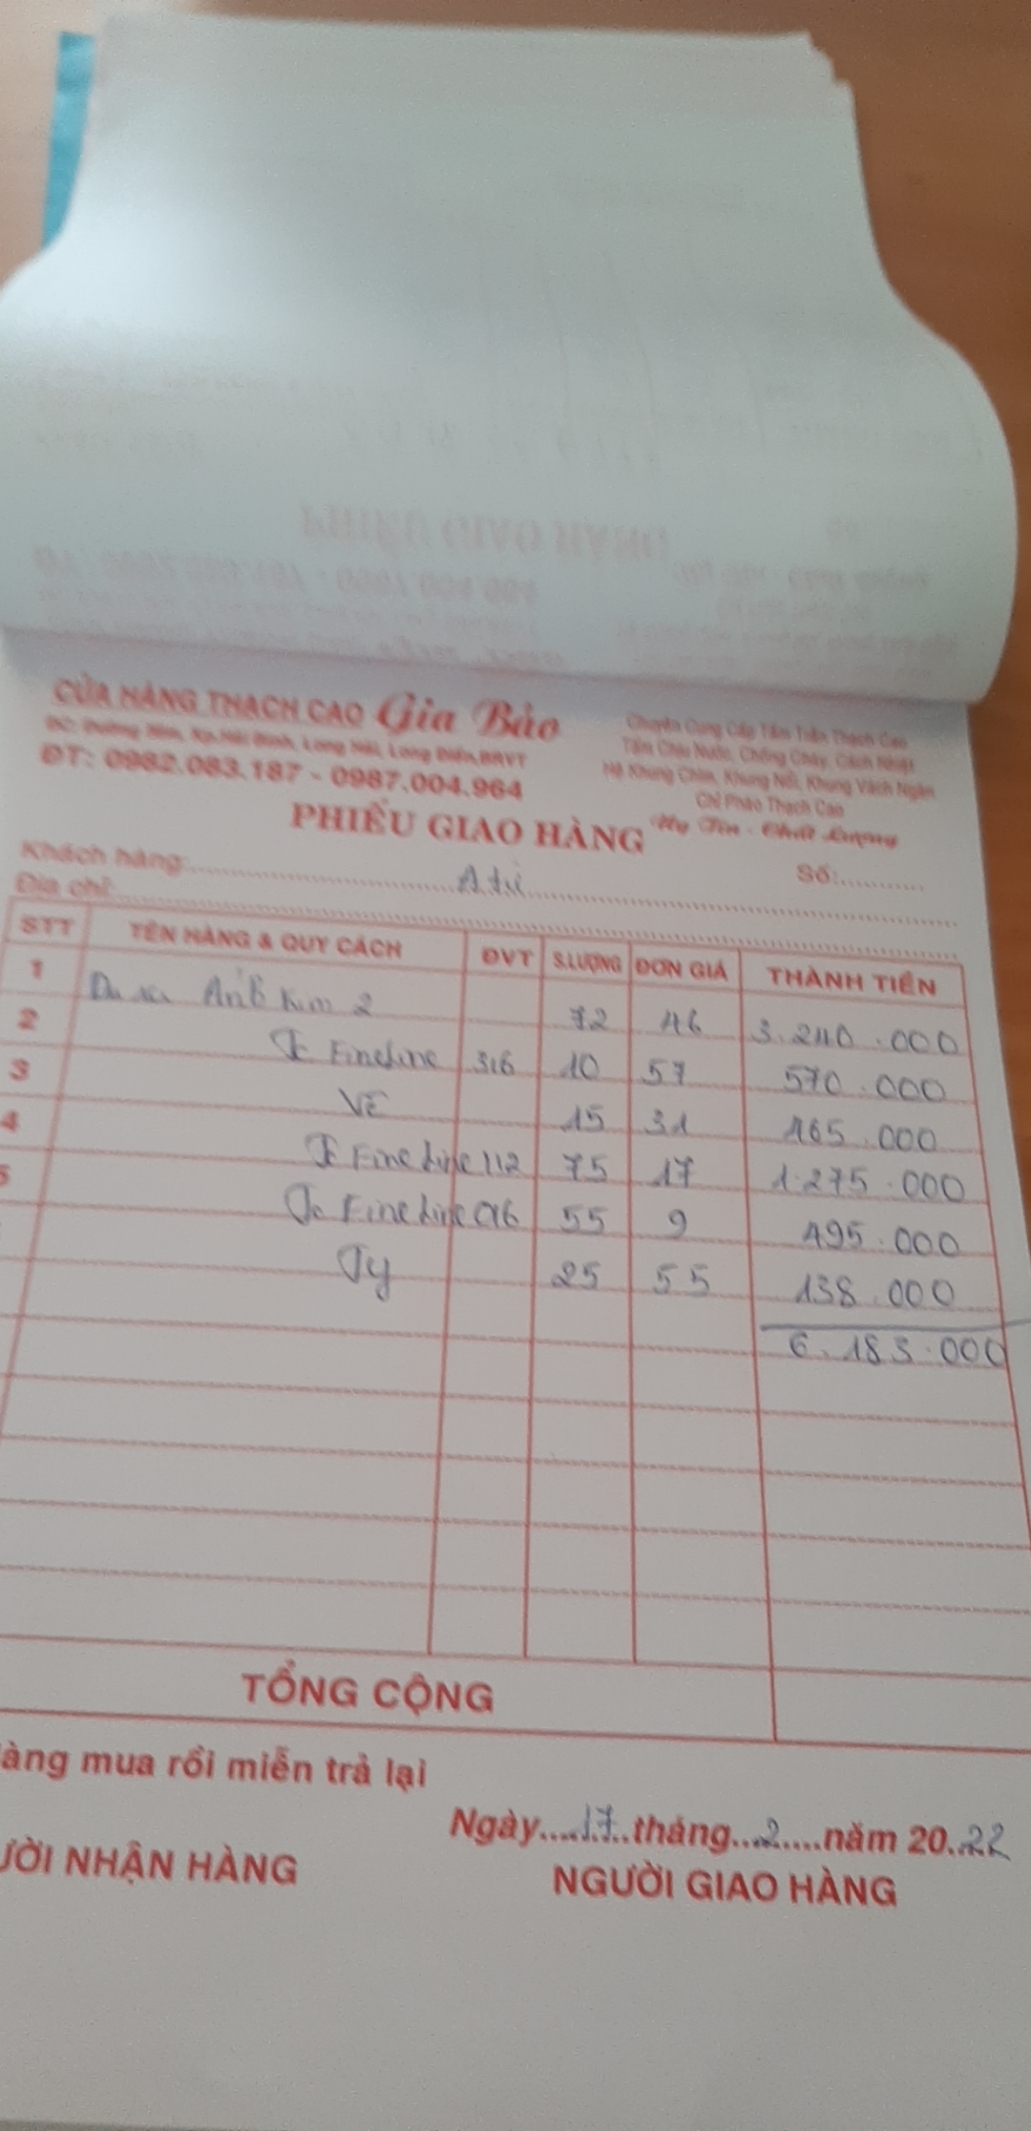 CỬA HÀNG THẠCH CAO Gia Bảo
Chuyên Cung Cấp Tấm Trần Thạch Cao
Long Hải, Long Điền, BRVT
Tấm Chịu Nước, Chống Cháy, Cách Nhiệt
ĐT: 0982.083.187 - 0987.004.964
Hệ Khung Chìm, Khung Nổi, Khung Vách Ngăn
Chỉ Phào Thạch Cao
PHIẾU GIAO HÀNG
Uy Tín - Chất Lượng
Khách hàng: A tú
Số:
Địa chỉ:
STT TÊN HÀNG & QUY CÁCH ĐVT S.LƯỢNG ĐƠN GIÁ THÀNH TIỀN
1 Kim 2 72 46 3.240.000
2 Fineline 3,6 10 57 570.000
3 VE 15 31 465.000
4 FineLine 1,2 75 17 1.275.000
5 FineLine 0,6 55 9 495.000
Ty 25 55 138.000
6.183.000
TỔNG CỘNG
àng mua rồi miễn trả lại
Ngày 17 tháng 2 năm 2022
ƯỜI NHẬN HÀNG
NGƯỜI GIAO HÀNG